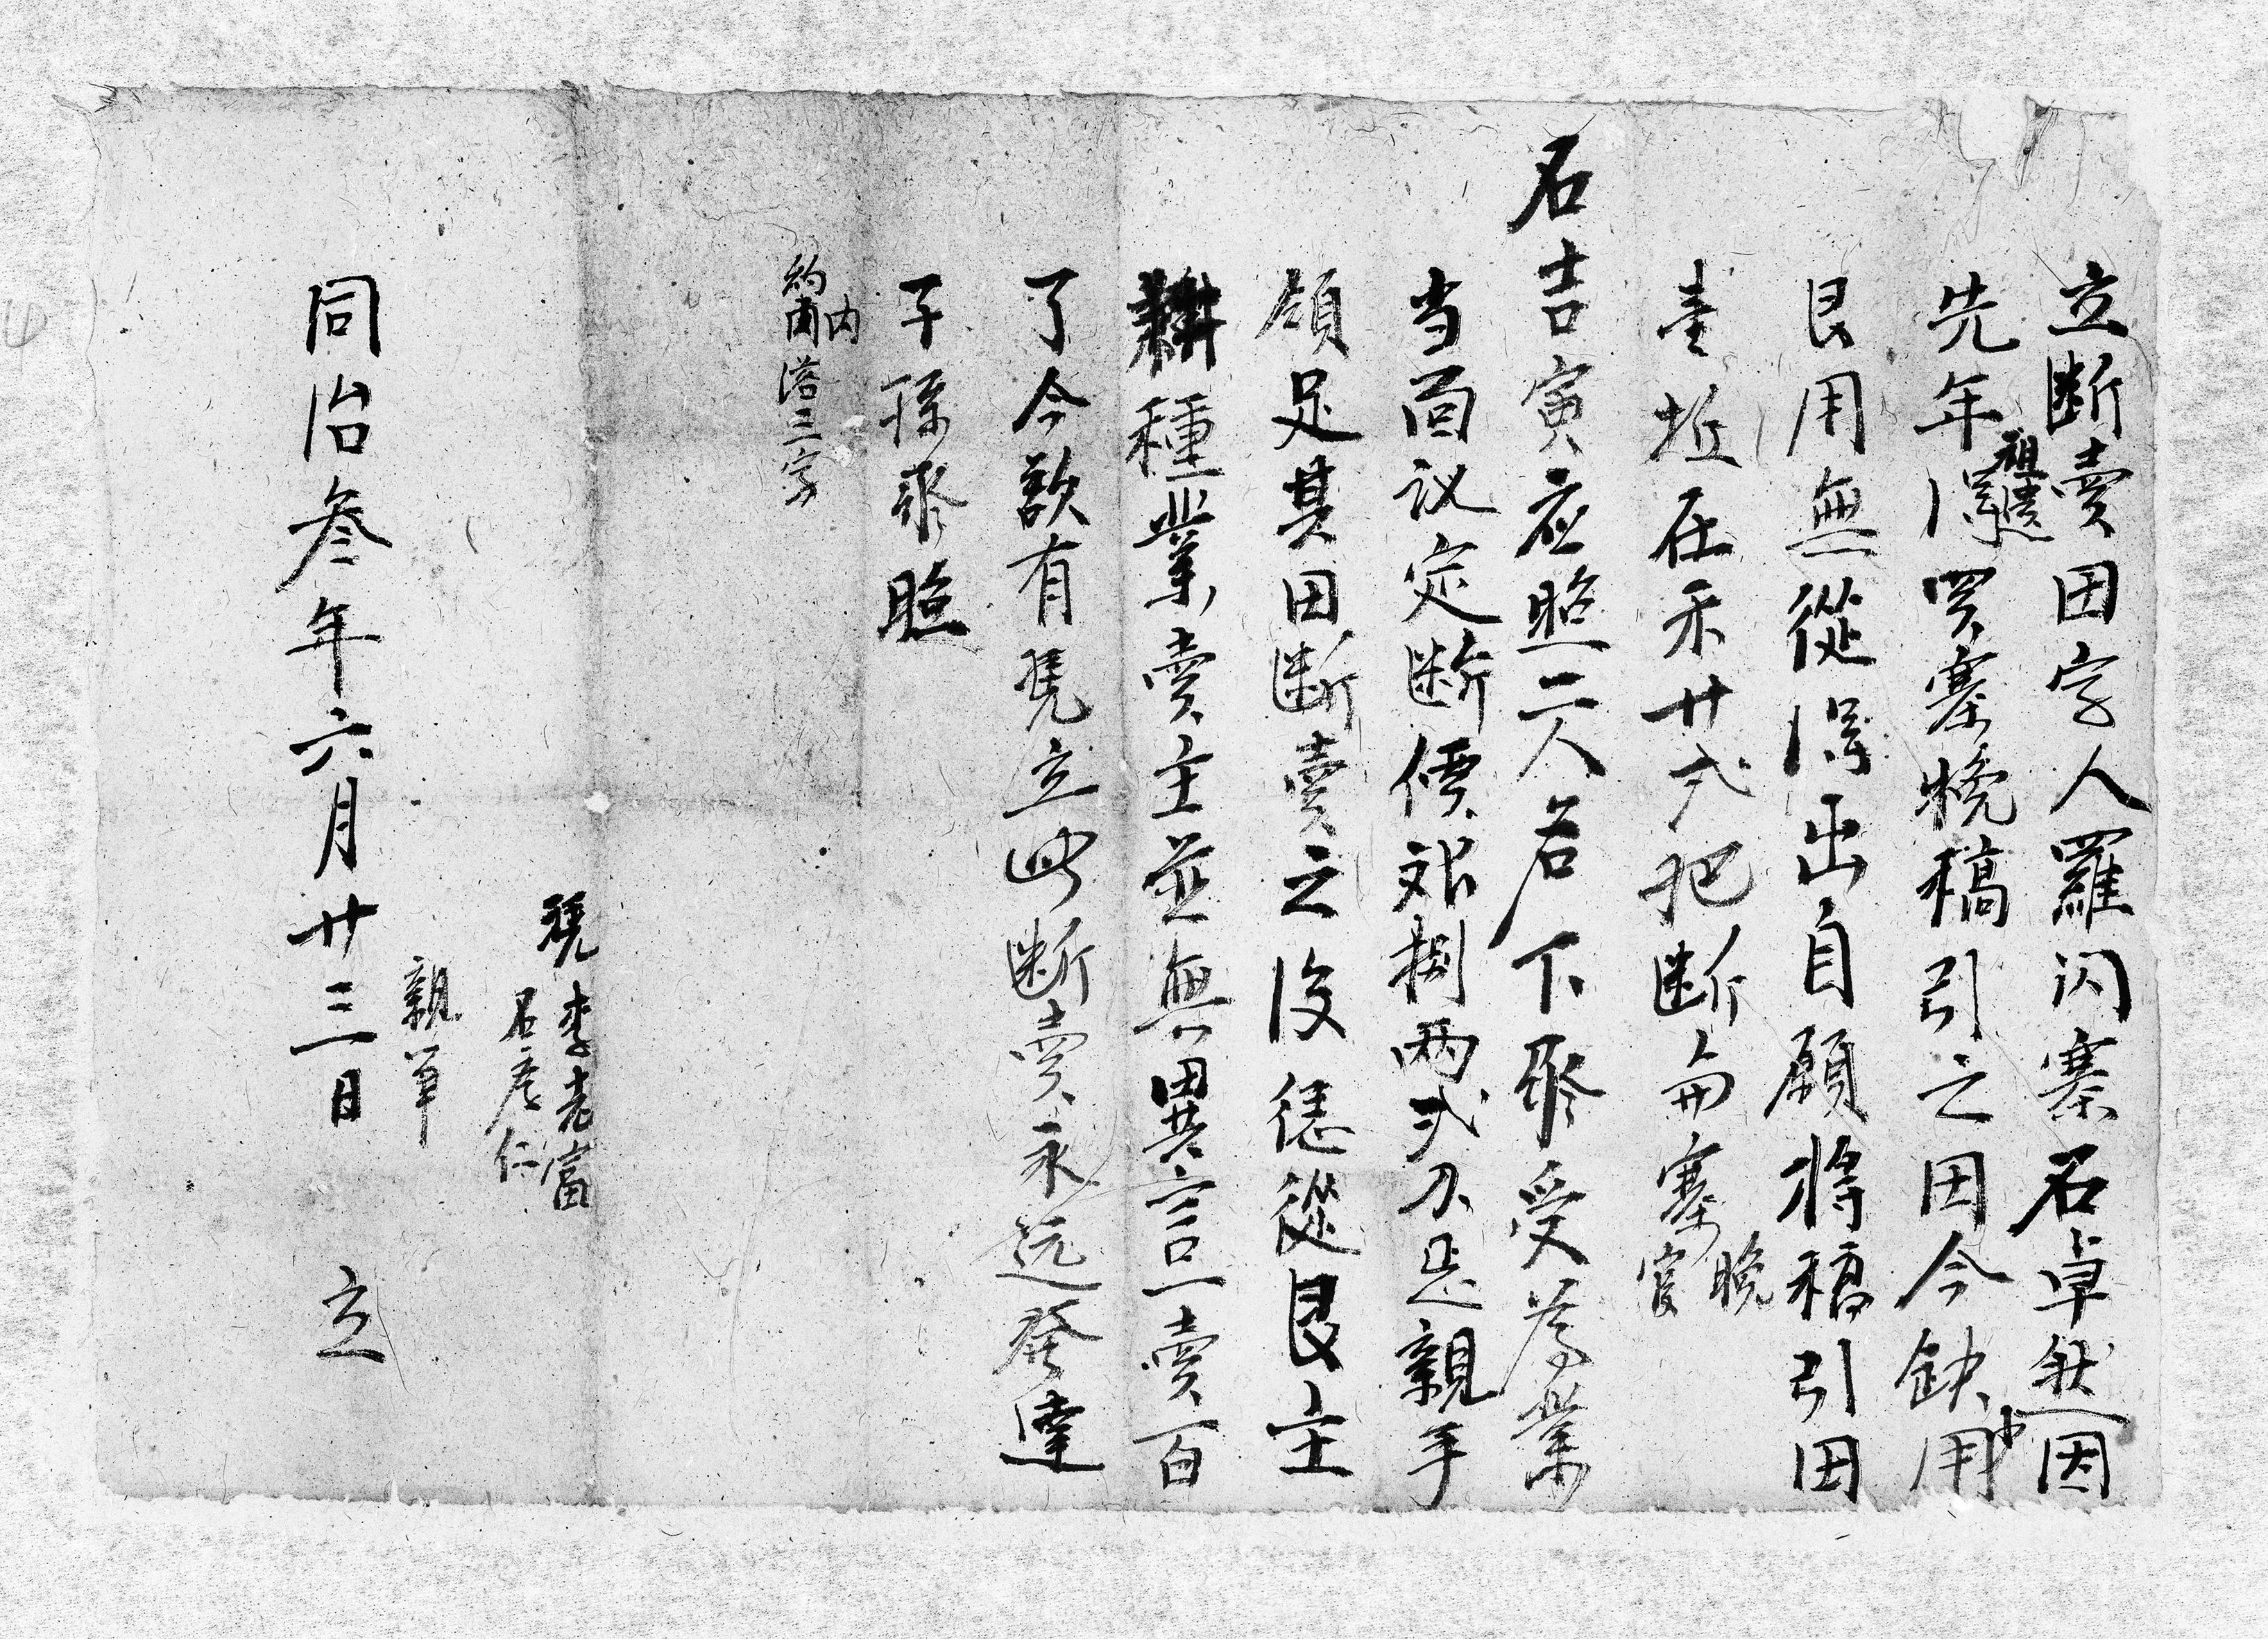 立断賣田字人羅闪寨石卓然因
先年得祖遺買寨晚稿引之田今缺少用
艮用無從得出自願将稿引田
壹坵在禾廿弍把断与寨晚官
石吉寅應照二人名下承受為業
当面议定断價艮捌両弍分足親手
領足其田断賣之後恁從艮主
耕種業賣主並無異言一賣百
了今欲有凭立此断賣永遠發達
子孫承照
内
約内落三字
凭 李老富
石彦仁
親筆
同治叁年六月廿三日 立